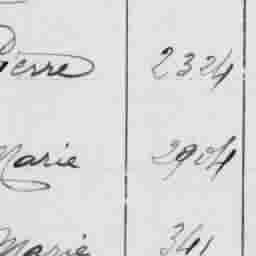 Pierre 2324
Marie 2904
Marie 341